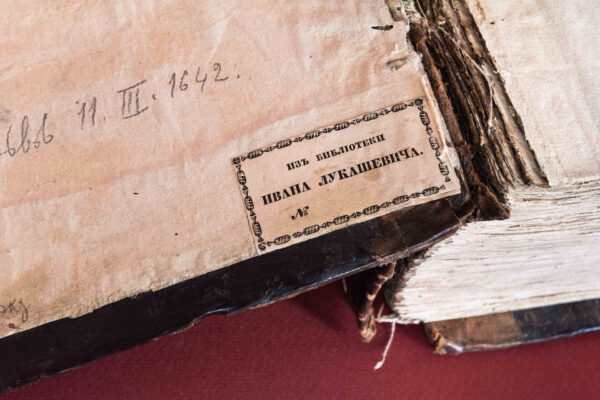 11. III. 1642.
ИЗЪ БИБЛІОТЕКИ
ИВАНА ЛУКАШЕВИЧА.
№